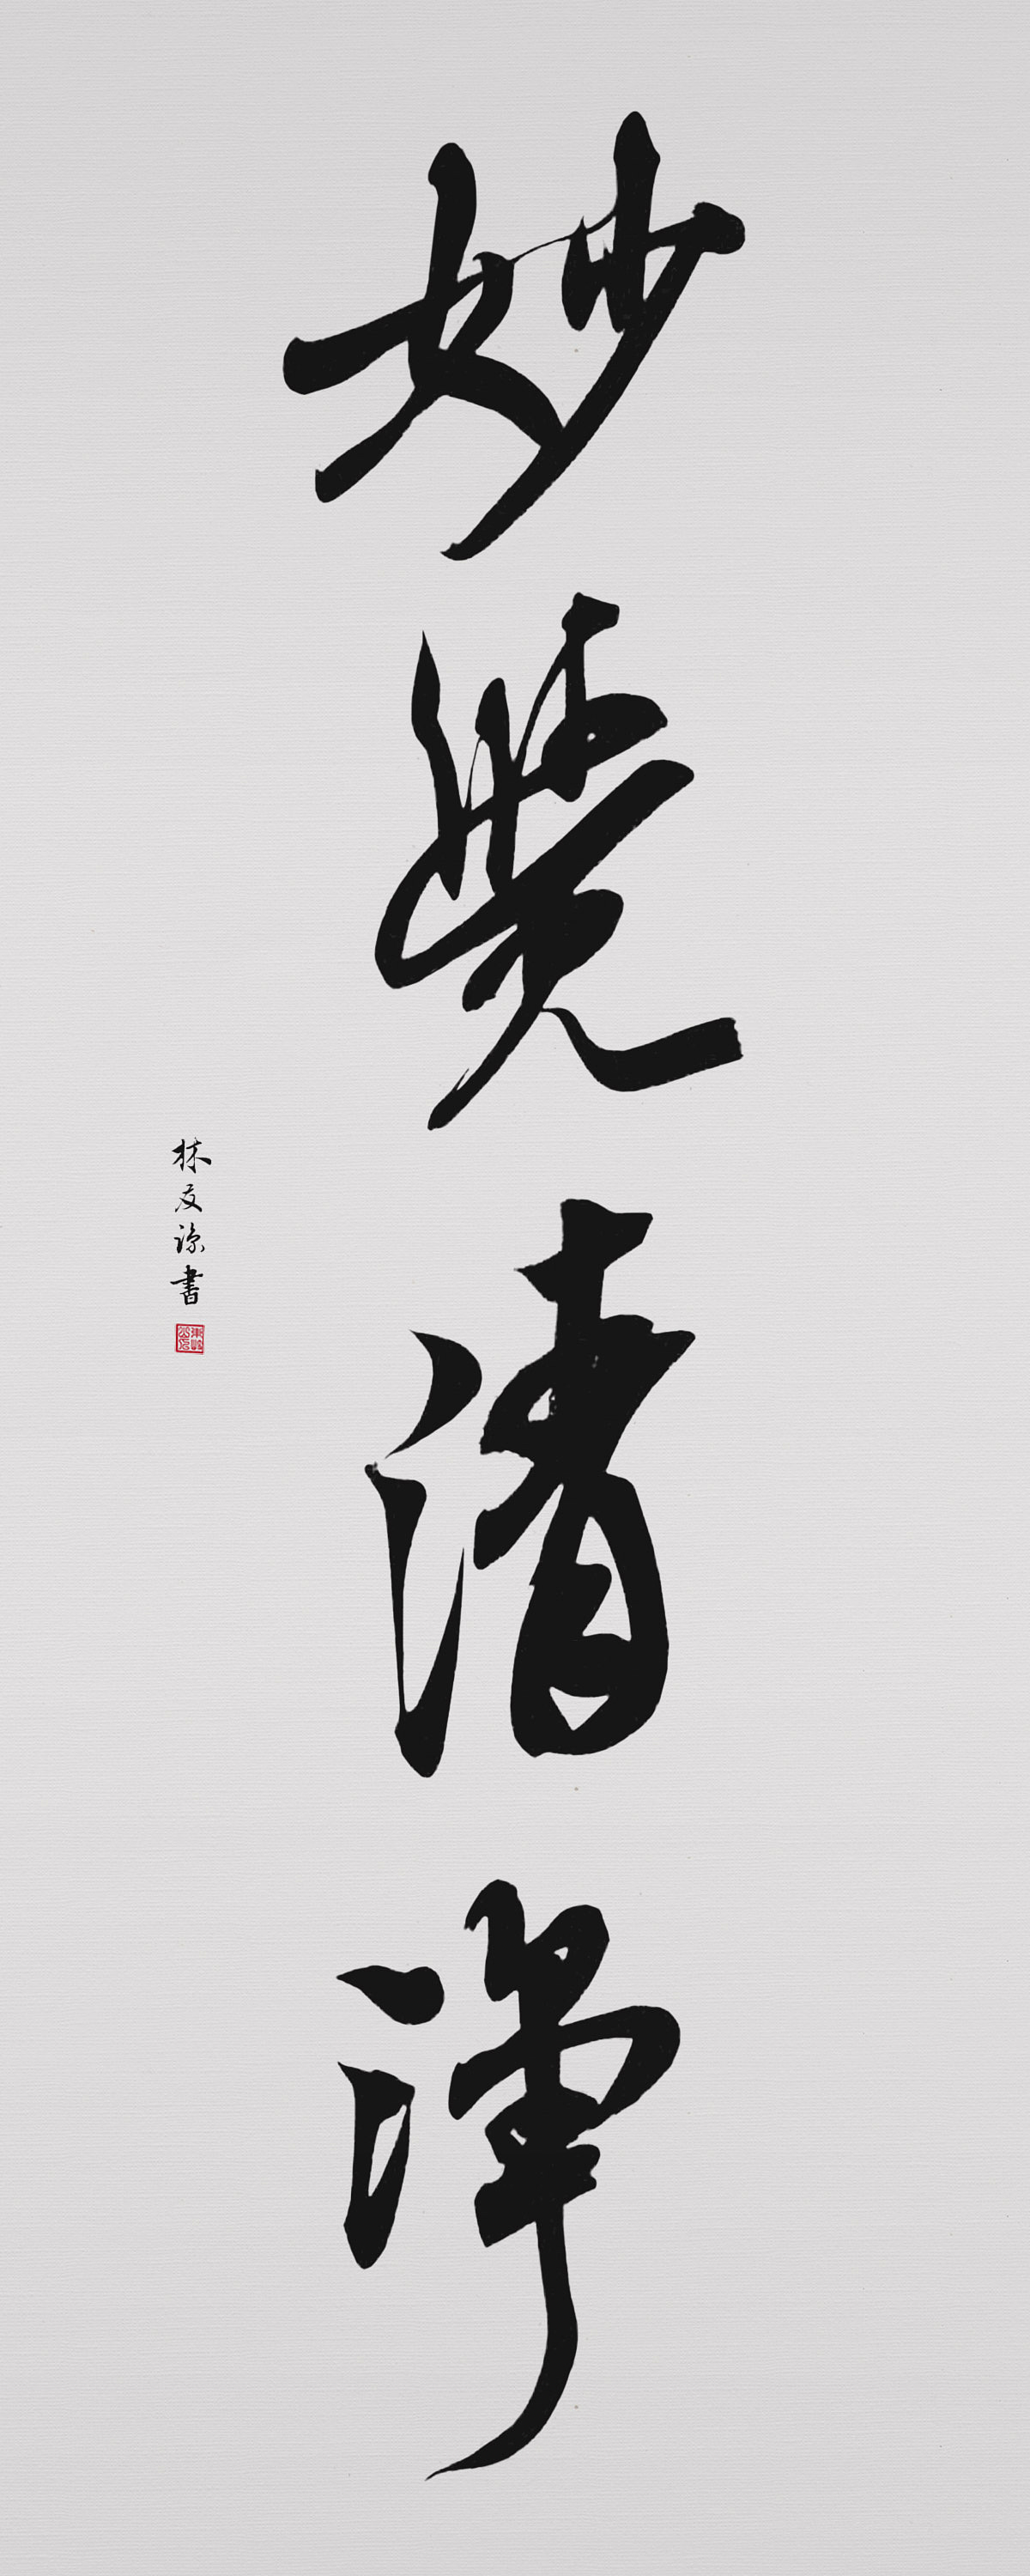 妙覺清淨
林友源書